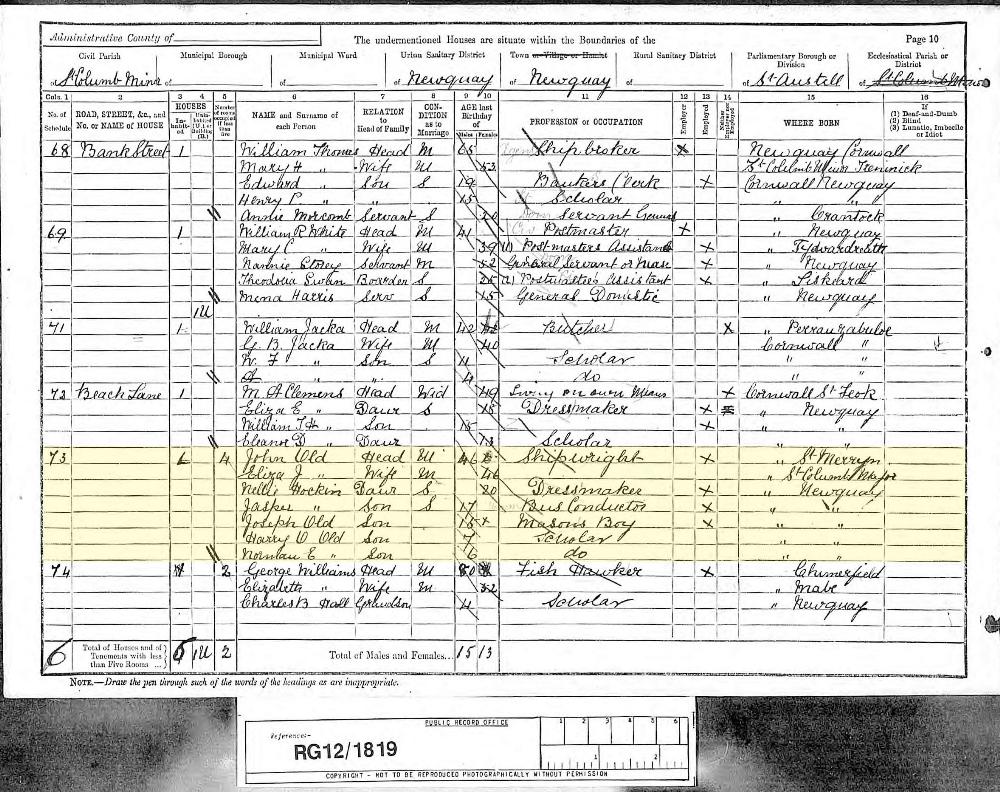 Administrative County of
The undermentioned Houses are situate within the Boundaries of the
Page 10
Civil Parish
Municipal Borough
Municipal Ward
Urban Sanitary District
Town or Village or Hamlet
Rural Sanitary District
Parliamentary Borough or Division
Ecclesiastical Parish or District
of St Columb Minor of of of Newquay of Newquay of of St Austell of
Cols. 1 2 3 4 5 6 7 8 9 10 11 12 13 14 15 16
No. of Schedule
ROAD, STREET, &c., and No. or NAME of HOUSE
HOUSES
In-habited
Uninhabited (U.) or Building (B.)
Number of rooms occupied if less than five
NAME and Surname of each Person
RELATION to Head of Family
CONDITION as to Marriage
AGE last Birthday of
Males Females
PROFESSION or OCCUPATION
Employer
Employed
Neither Employer nor Employed
WHERE BORN
If (1) Deaf-and-Dumb (2) Blind (3) Lunatic, Imbecile or Idiot
68 Bank Street 1 William Thomas Head M 65 Shipbroker X Newquay Cornwall
Mary H " Wife M 53 St Columb Minor
Edward " Son S 19 Bankers Clerk X Cornwall Newquay
Henry P. " " 15 Scholar " "
Annie Morcomb Servant S 20 Servant " Crantock
69 1 William R White Head M 41 Postmaster X " Newquay
Mary C " Wife M 39 Postmasters Assistant X " Tywardreath
Nannie Storey Servant M 52 General Servant or Nurse X " Newquay
Theodosia Swan Boarder S 25 Postmasters Assistant X " Liskeard
Mena Harris Serv S 15 General Domestic " Newquay
1U
71 1 William Jacka Head M 42 Butcher X " Perranzabuloe
G. B. Jacka Wife M 40 Cornwall "
W. F " Son S 11 Scholar " "
" " do " "
72 Beach Lane 1 M. A Clemens Head Wid 49 Living on own Means X Cornwall St Teok
Eliza E " Daur S 18 Dressmaker X " Newquay
William T.H " Son 15 X
Eleanor D " Daur 13 Scholar " "
73 1 4 John Old Head M 46 Shipwright X " St Merryn
Eliza J " Wife M 46 " St Columb Major
Nellie Hockin Daur S 20 Dressmaker X " Newquay
Jasper " Son S 17 Bus Conductor X " "
Joseph Old Son 15 X Masons Boy X " "
Harry O Old Son 7 Scholar " "
Norman E " Son 6 do " "
74 2 George Williams Head M Fish Hawker X
Elizabeth " Wife M 52 " Mabe
Charles B Hall Grandson 4 Scholar " Newquay
6 Total of Houses and of Tenements with less than Five Rooms ... 1U 2
Total of Males and Females... 15 13
NOTE.—Draw the pen through such of the words of the headings as are inappropriate.
PUBLIC RECORD OFFICE
1 2 3 4 5 6
Reference:-
RG12/1819
1 2
COPYRIGHT - NOT TO BE REPRODUCED PHOTOGRAPHICALLY WITHOUT PERMISSION